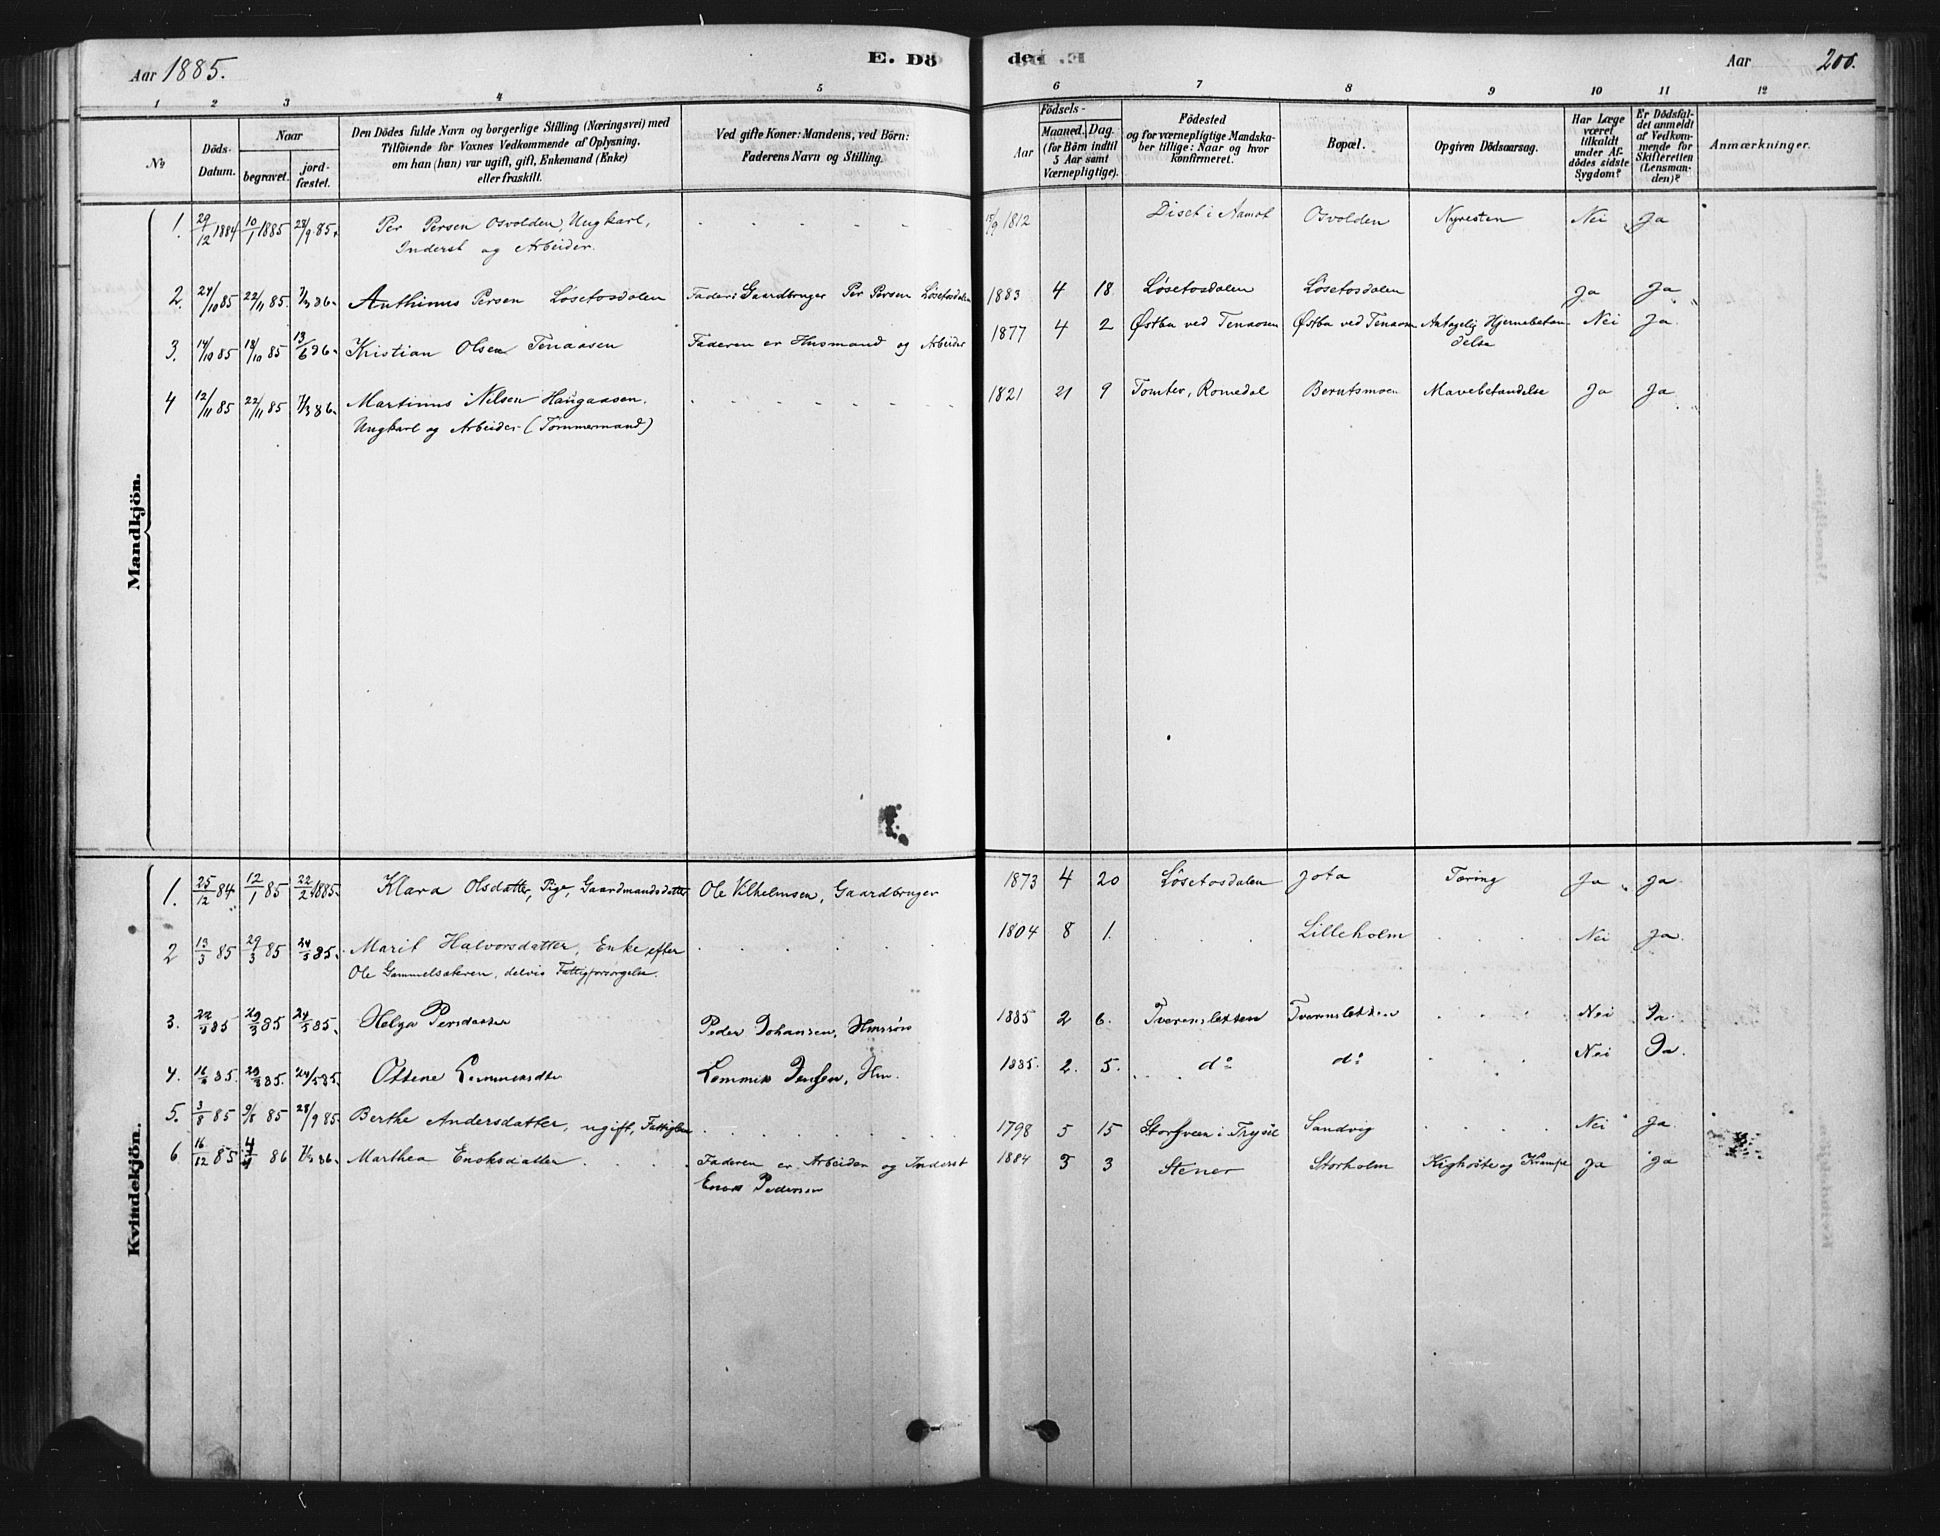 Aar 1885.
E. Dö
de
Aar
200.
1 2 3 4 5 6 7 8 9 10 11 12
No
Döds-
Datum.
Naar
begravet.
jord-
fæstet.
Den Dödes fulde Navn og borgerlige Stilling (Næringsvei) med
Tilföiende for Voxnes Vedkommende af Oplysning,
om han (hun) var ugift, gift, Enkemand (Enke)
eller fraskilt.
Ved gifte Koner: Mandens, ved Börn:
Faderens Navn og Stilling.
Födsels-
Aar
Maaned. Dag.
(for Börn indtil
5 Aar samt
Værnepligtige).
Födested
og for værnepligtige Mandska-
ber tillige: Naar og hvor
konfirmeret.
Bopæl.
Opgiven Dödsaarsag.
Har Læge
været
tilkaldt
under Af-
dödes sidste
Sygdom?
Er Dödsfal-
det anmeldt
af Vedkom-
mende for
Skifteretten
(Lensman-
den)?
Anmærkninger.
Mandkjön.
1. 29/12 1884 10/1 1885 28/9 85. Per Persen Osvolden, Ungkarl, 15/9 1812 Diset i Aamot Osvolden Nyresten Nei Ja
Inderst og Arbeider.
2. 24/10 85 22/11 85. 7/3 86. Anthinus Persen Løsetosdalen Fader: Gaardbruger Per Persen Løsetosdalen 1883 4 18 Løsetosdalen Løsetosdalen Ja Ja
3. 14/10 85 18/10 85 13/6 86. Kristian Olsen Tenaasen Faderen er Husmand og Arbeider 1877 4 2 Østba ved Tenaasen Østba ved Tenaasen Antagelig Hjernebetæn- Nei Ja.
delse
4 12/11 85 22/11 85 7/3 86. Martinus Nilsen Haugaasen. 1821 21 9 Tomter, Romedal Berntsmoen Mavebetændelse Ja Ja
Ungkarl og Arbeider (Tømmermand)
Kvindekjön.
1. 25/12 84 12/1 85 22/2 1885. Klara Olsdatter, Pige, Gaardmandsdatter Ole Vilhelmsen, Gaardbruger 1873 4 20 Løsetosdalen Jota Tæring Ja Ja
2 13/3 85 29/3 85 24/5 85. Marit Halvorsdatter, Enke efter 1804 8 1. Lilleholm Nei Ja.
Ole Gammelsakeren, delvis Fattigforsørgelse.
3. 22/3 85 29/3 85 24/5 85. Helga Persdatter Peder Johansen, 1885 2 6. Tverensletten Tverensletten Nei Ja.
4. 85. 85. 24/5 85. Ottene Lemmensdtr Lemmik Jensen, Hm. 1885. 2. 5. do do Nei Ja.
5. 3/8 85 9/8 85 28/9 85. Berthe Andersdatter, ugift, Fattiglem 1798 5 15 Storsveen i Trysil Sandvig Nei Ja.
6 16/12 85 86 7/3 86. Marthea Enoksdatter Faderen er Arbeider og Inderst 1884 3 3 Stener Storholm Kighoste og Krampe Ja Ja
Enok Pedersen